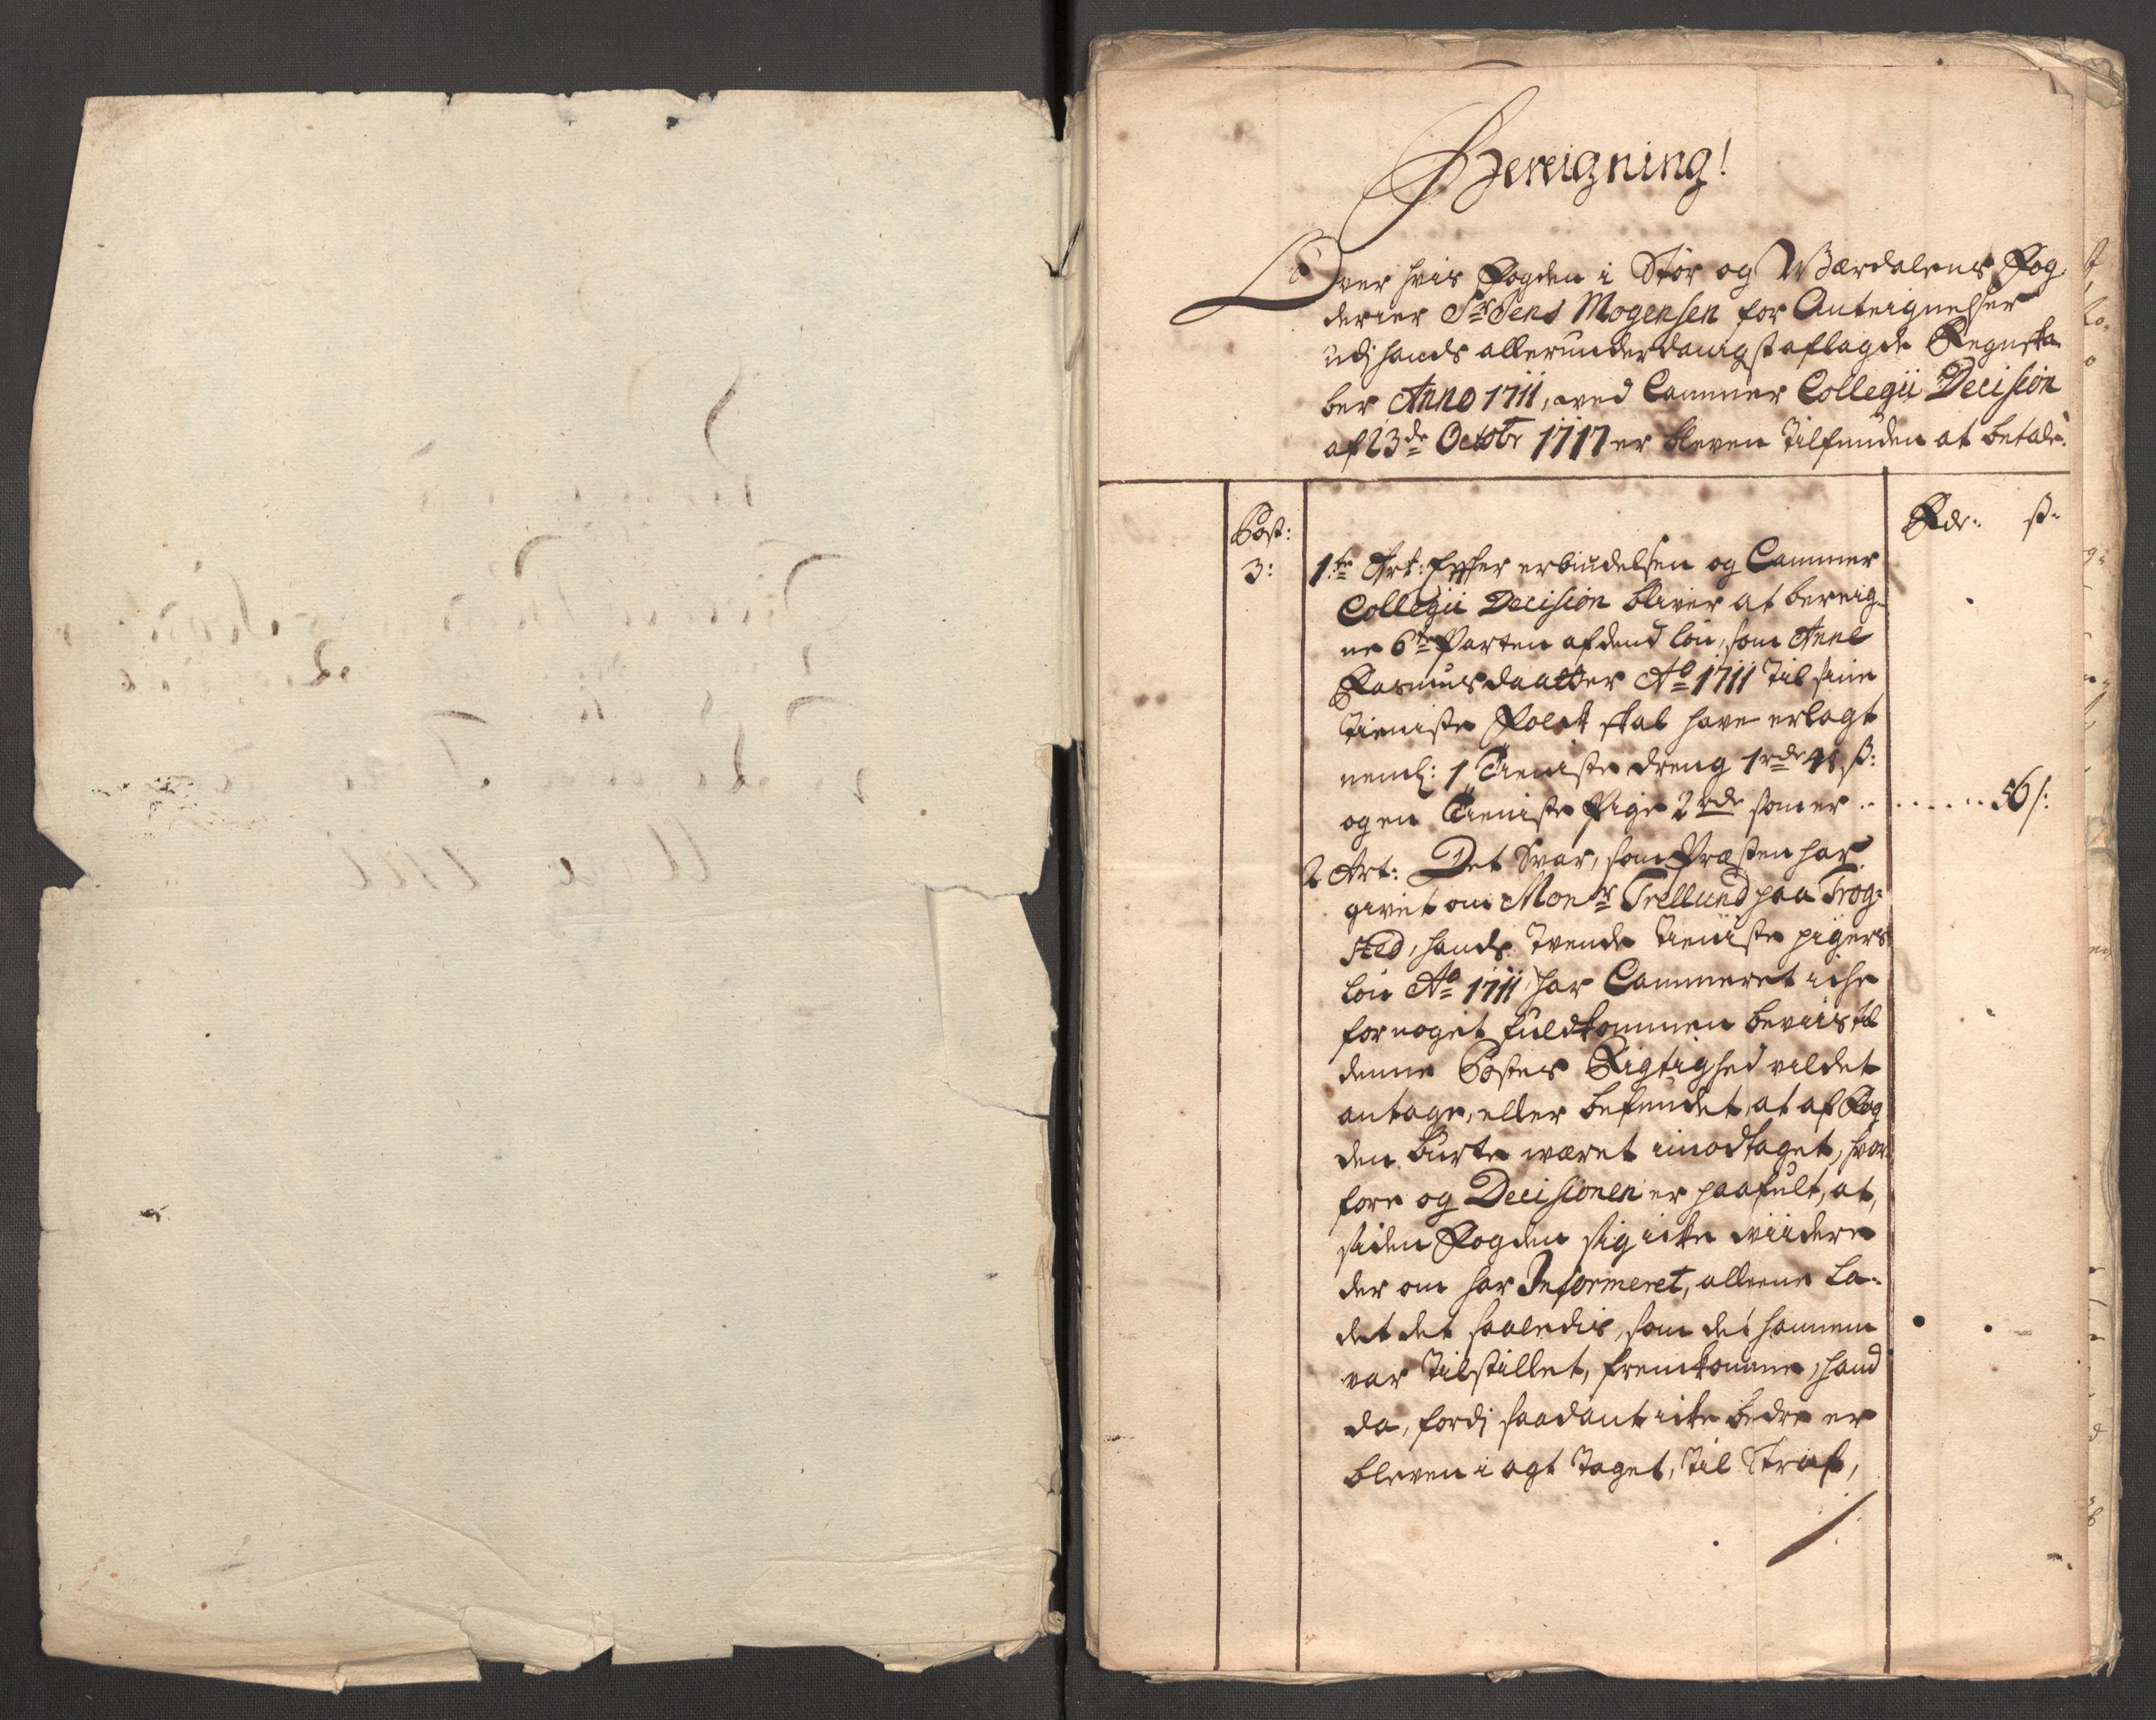 Bereigning!
Over hvis Fogden i Stør og Wærdalens Fog-
derier Sr Jens Mogensen for Anteignelser
udj hands allerunderdanigst aflagde Regnska
ber Anno 1711, ved Cammer Collegii Decision
af 23de Octobr 1717 er bleven tilfunden at betale.
Post: Rdr: ß:
3: 1te Art: Effter erbiudelsen og Cammer
Collegii Decision bliver at bereig-
ne 6te Parten af dend løn, som Anne
Rasmusdaatter Ao 1711 til sine
tieniste Folck skal have erlagt
neml: 1 Tieniste dreng 1 rdr 48 ß:
og en Tieniste Pige 2 rdr som er ........ 56 ß:
2 Art: Det Svar, som Præsten har
givet om Monsr Trellund paa Trog-
sted, hands tvende tieniste pigers
løn Ao 1711, har Cammeret iche
for noget fuldkommen beviis til
denne Postes Rigtighed vildet
antage, eller befundet, at af Fog
den burte været imodtaget, hvor
fore og Decisionen er paafult, at,
siden Fogden sig icke viidere
der om har Informeret, alleene la-
det det saaledis, som det hannem
var tilstillet, fremkomme, hand
da, fordj saadant icke bedre er
bleven i agt taget, til Straf,